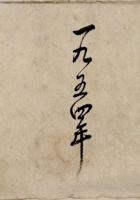 一九五四年